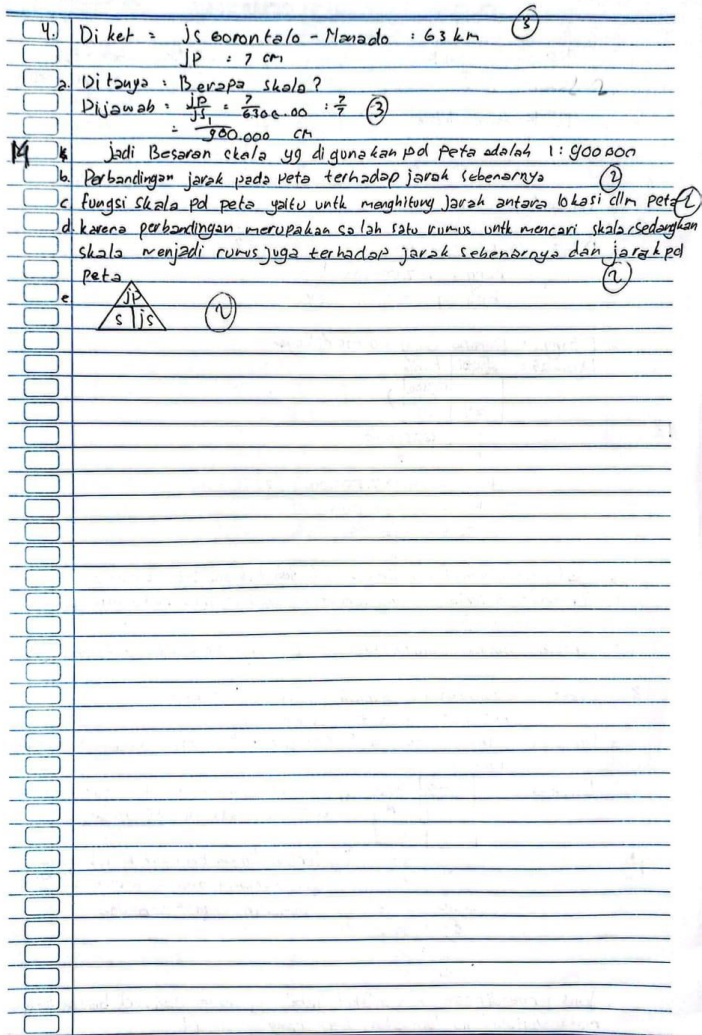 4. Diket : js Gorontalo - Manado : 63 km (3)
jp : 7 cm
a. Ditanya : Berapa skala?
Dijawab : jp/js = 7/6300.00 : 7/7 (3)
= 1/900.000 cm
jadi Besaran skala yg digunakan pd peta adalah 1: 900 000
b. Perbandingan jarak pada peta terhadap jarak sebenarnya (2)
c. fungsi skala pd peta yaitu untk menghitung jarak antara lokasi dlm peta (2)
d. karena perbandingan merupakan salah satu rumus untk mencari skala, sedangkan
skala menjadi rumus juga terhadap jarak sebenarnya dan jarak pd
peta (2)
e jp
s js (2)